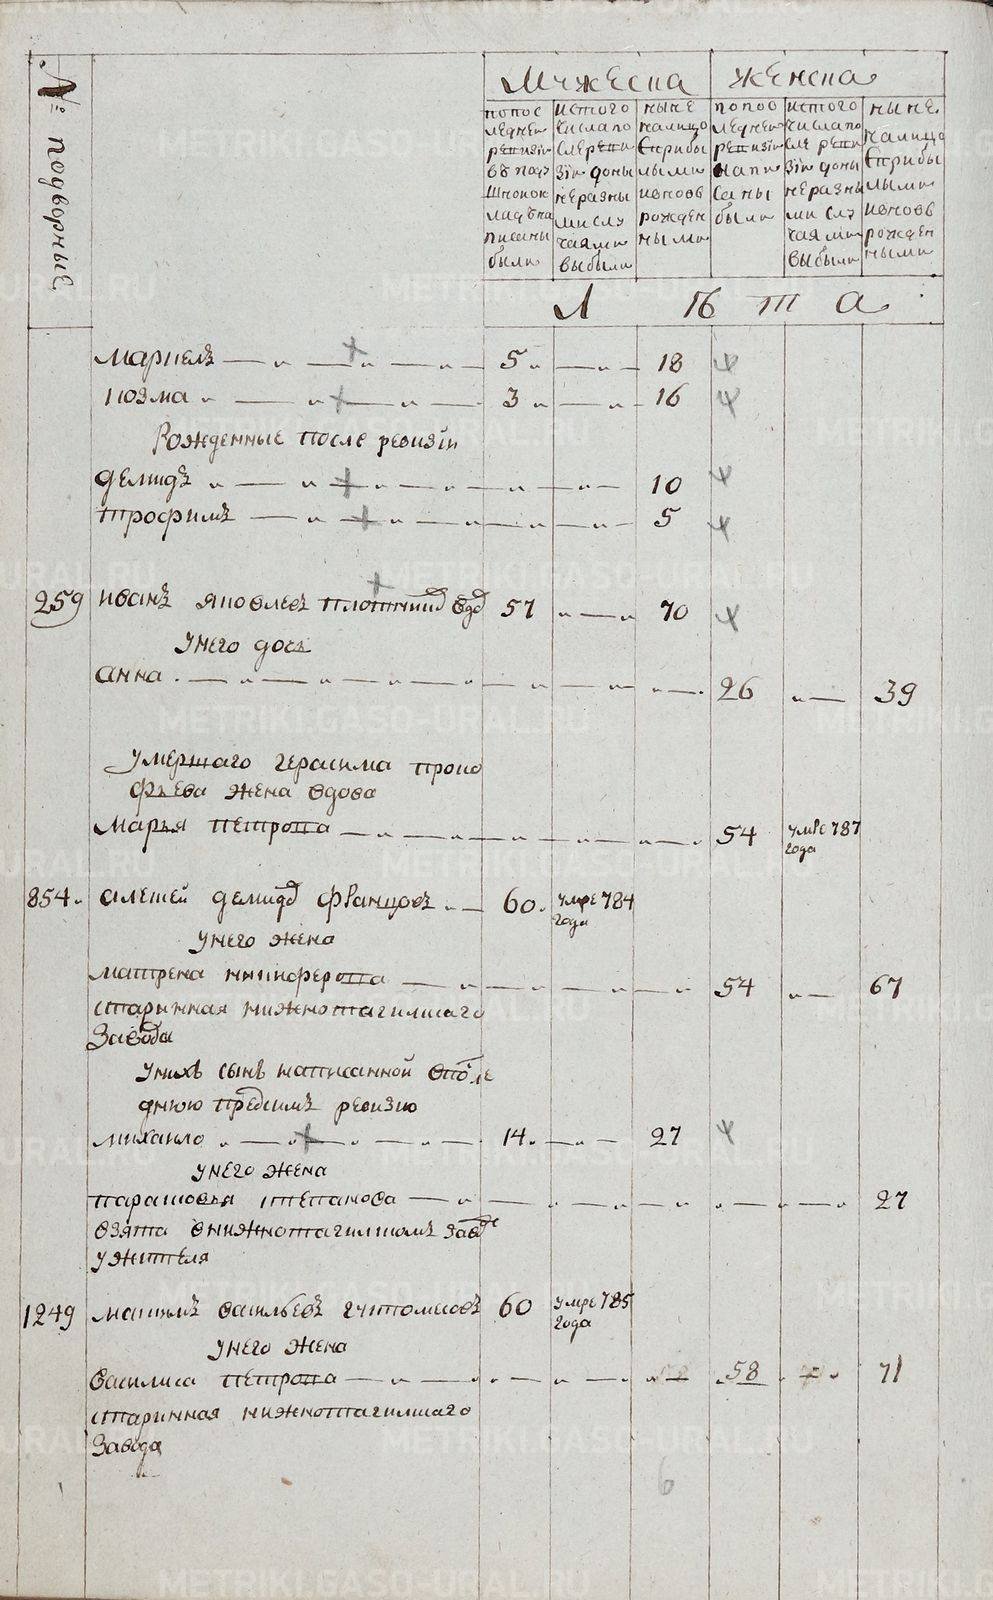 № подворные
мужеска
женска
по последней ревизiи въ подушной окладъ написаны были
ис того числа после ревизiи до ныне разными случаями выбыли
ныне налицо с прибылыми и вновь рожденными
по последней ревизiи написаны были
ис того числа после ревизiи до ныне разными случаями выбыли
ныне налицо с прибылыми и вновь рожденными
Лѣта
маркелъ 5 18
козма 3 16
Рожденные после ревизiи
демидъ 10
трофимъ 5
259 иванъ яковлевъ вдо 57 70
у него дочь
анна 26 39
умершаго герасима проко
фьева жена вдова
марья петрова 54 умре 787 года
854 алексей демидо францовъ 60 умре 784 года
у него жена
матрена никифорова 54 67
старинная нижнотагилскаго
завода
у нихъ сынъ написанной в после
днюю пред симъ ревизию
михаило 14 27
у него жена
парасковья степанова 27
взята в нижнотагилскомъ заво
у жителя
1249 максимъ васильевъ 60 умре 785 года
у него жена
василиса петрова 58 71
старинная нижнотагилскаго
завода
6
METRIKI.GASO-URAL.RU